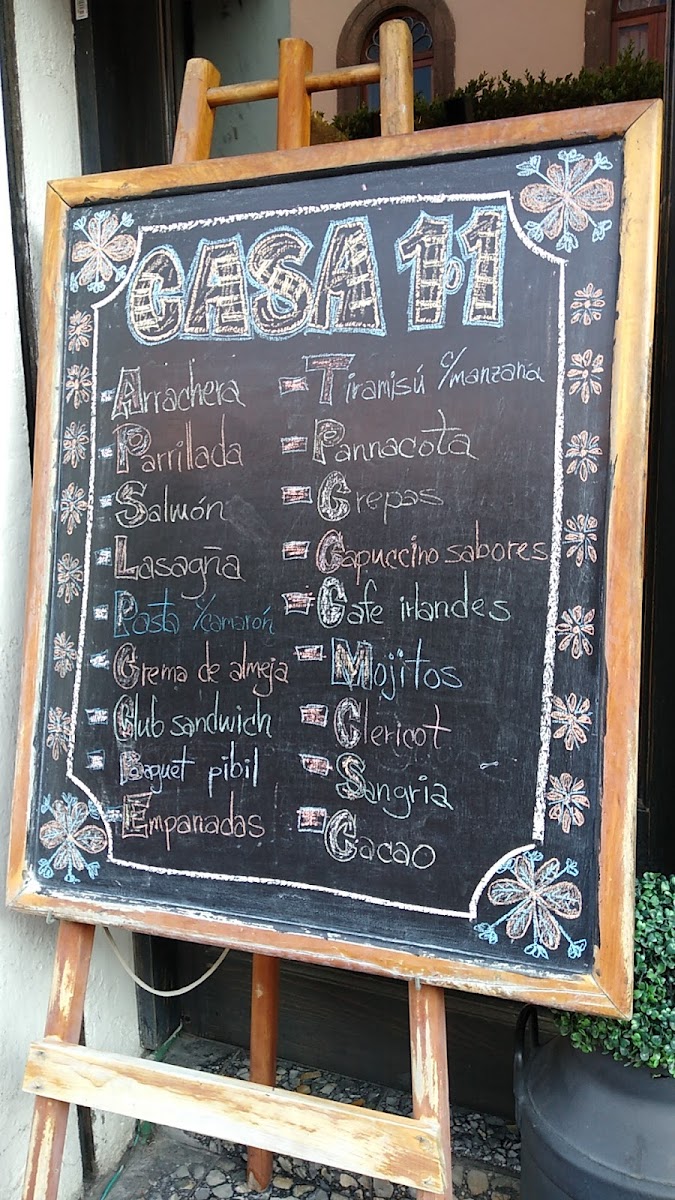 CASA 1.1
- Arrachera
- Parrillada
- Salmón
- Lasagña
- Pasta c/camarón
- Crema de almeja
- Club sandwich
- Baguet pibil
- Empanadas
- Tiramisú c/manzana
- Pannacota
- Crepas
- Capuccino sabores
- Cafe irlandes
- Mojitos
- Clericot
- Sangria
- Cacao